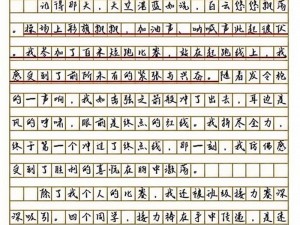 记得那天，天空湛蓝如洗，白云悠悠飘荡
。操场上彩旗飘飘，加油声、呐喊声此起彼伏
。我参加了百米短跑比赛，站在起跑线上，我
感受到了前所未有的紧张与兴奋。随着发令枪
的一声响，我如离弦之箭般冲了出去，耳边是
风的呼啸，眼前是终点的红线。我拼尽全力，
终于第一个冲过了终点线，那一刻，我仿佛感
受到了胜利的喜悦在胸中激荡。
除了我个人的比赛，我还被班级接力赛深
深吸引。四个同学，接力棒在手中传递，是速